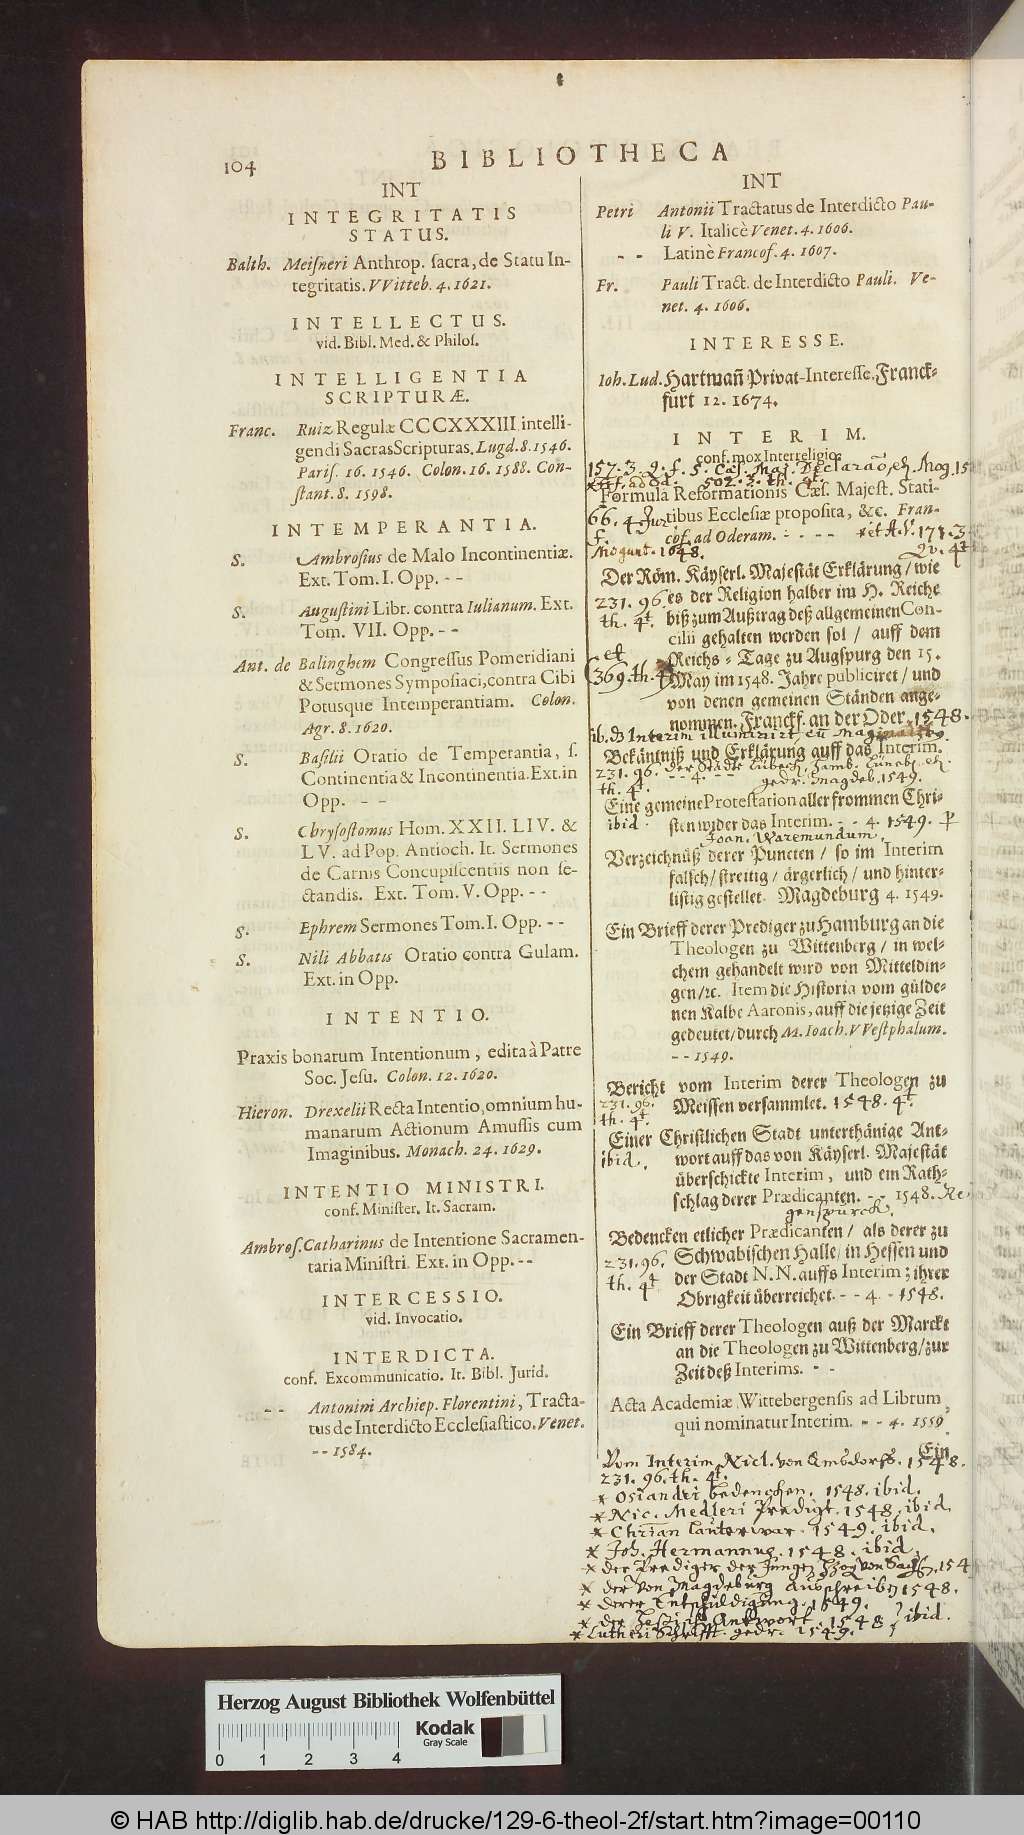 104
BIBLIOTHECA
INT
INTEGRITATIS
STATUS.
Balth. Meiſneri Anthrop. ſacra, de Statu In-
tegritatis. VVitteb. 4. 1621.
INTELLECTUS.
vid. Bibl. Med. & Philoſ.
INTELLIGENTIA
SCRIPTURÆ.
Franc. Ruiz Regulæ CCCXXXIII. intelli-
gendi Sacras Scripturas. Lugd. 8. 1546.
Pariſ. 16. 1546. Colon. 16. 1588. Con-
ſtant. 8. 1598.
INTEMPERANTIA.
S. Ambroſius de Malo Incontinentiæ.
Ext. Tom. I. Opp. - -
S. Auguſtini Libr. contra Iulianum. Ext.
Tom. VII. Opp. - -
Ant. de Balinghem Congreſſus Pomeridiani
& Sermones Sympoſiaci, contra Cibi
Potusque Intemperantiam. Colon.
Agr. 8. 1620.
S. Baſilii Oratio de Temperantia, ſ.
Continentia & Incontinentia. Ext. in
Opp. - -
S. Chryſoſtomus Hom. XXII. LIV. &
LV. ad Pop. Antioch. It. Sermones
de Carnis Concupiſcentiis non ſe-
ctandis. Ext. Tom. V. Opp. - -
S. Ephrem Sermones Tom. I. Opp. - -
S. Nili Abbatis Oratio contra Gulam.
Ext. in Opp.
INTENTIO.
Praxis bonarum Intentionum, edita à Patre
Soc. Jeſu. Colon. 12. 1620.
Hieron. Drexelii Recta Intentio, omnium hu-
manarum Actionum Amuſſis cum
Imaginibus. Monach. 24. 1629.
INTENTIO MINISTRI.
conf. Miniſter. It. Sacram.
Ambroſ. Catharinus de Intentione Sacramen-
taria Miniſtri. Ext. in Opp. - -
INTERCESSIO.
vid. Invocatio.
INTERDICTA.
conf. Excommunicatio. It. Bibl. Jurid.
- - Antonini Archiep. Florentini, Tracta-
tus de Interdicto Eccleſiaſtico. Venet.
- - 1584.
INT
Petri Antonii Tractatus de Interdicto Pau-
li V. Italicè Venet. 4. 1606.
- - Latinè Francof. 4. 1607.
Fr. Pauli Tract. de Interdicto Pauli. Ve-
net. 4. 1606.
INTERESSE.
Ioh. Lud. Hartmañ Privat-Intereſſe. Franck-
furt 12. 1674.
INTERIM.
conf. mox Interreligio.
157. 3. Q. f. 5. Cæſ. Maj. Declarao, Mog. 15
502. 3. th. 4t.
Formula Reformationis Cæſ. Majeſt. Stati-
66. 4 Jur. tibus Eccleſiæ propoſita, &c. Fran-
f. cof. ad Oderam. - - - - et A. V. 171. 3
Mogunt. 1648. Qv. 4t
Der Röm. Käyſerl. Majeſtät Erklärung / wie
231. 96. es der Religion halber im H. Reiche
th. 4t. biß zum Außtrag deß allgemeinen Con-
cilii gehalten werden ſol / auff dem
et Reichs-Tage zu Augſpurg den 15.
369. th. 4 May im 1548. Jahre publiciret / und
von denen gemeinen Ständen ange-
nommen. Franckf. an der Oder. 1548.
ib. Interim illuminirt
Bekäntniß und Erklärung auff das Interim.
231. 96. der Städte Lübeck, Hamb. Lüneb.
th. 4t. - - 4. - - gedr. Magdeb. 1549.
Eine gemeine Protestation aller frommen Chri-
ibid. ſten wider das Interim. - - 4. 1549.
Joan. Waremundum.
Verzeichnüß derer Puncten / ſo im Interim
falſch / ſtreitig / ärgerlich / und hinter-
liſtig geſtellet. Magdeburg 4. 1549.
Ein Brieff derer Prediger zu Hamburg an die
Theologen zu Wittenberg / in wel-
chem gehandelt wird von Mitteldin-
gen / ꝛc. Item die Hiſtoria vom gülde-
nen Kalbe Aaronis, auff die jetzige Zeit
gedeutet / durch M. Ioach. VVeſtphalum.
- - 1549.
Bericht vom Interim derer Theologen zu
231. 96. Meiſſen verſammlet. 1548. 4t.
th. 4t.
Einer Chriſtlichen Stadt unterthänige Ant-
ibid. wort auff das von Käyſerl. Majeſtät
überſchickte Interim, und ein Rath-
ſchlag derer Prædicanten. - - 1548. Re-
genspurck.
Bedencken etlicher Prædicanten / als derer zu
231. 96. Schwäbiſchen Halle / in Heſſen und
th. 4t der Stadt N. N. auffs Interim; ihrer
Obrigkeit überreichet. - - 4 - 1548.
Ein Brieff derer Theologen auß der Marckt
an die Theologen zu Wittenberg / zur
Zeit deß Interims. - -
Acta Academiæ Wittebergenſis ad Librum,
qui nominatur Interim. - - 4. 1559
Ein
Vom Interim Nicl. von Amsdorff. 1548.
231. 96. th. 4t.
* Osiandri bedencken. 1548. ibid.
* Nic. Medleri Predigt. 1548. ibid
* Chriſtian Lauterwar. 1549. ibid.
* Joh. Hermannus. 1548. ibid.
* der Prediger der Jungen von Sachſen. 154
* der von Magdeburg Ausſchreiben 1548.
* derer Entſchuldigung. 1549.
* der Antwort. 1548 ibid.
* Lutheri Schrifft. gedr. 1549.
Herzog August Bibliothek Wolfenbüttel
Kodak
Gray Scale
0 1 2 3 4
© HAB http://diglib.hab.de/drucke/129-6-theol-2f/start.htm?image=00110